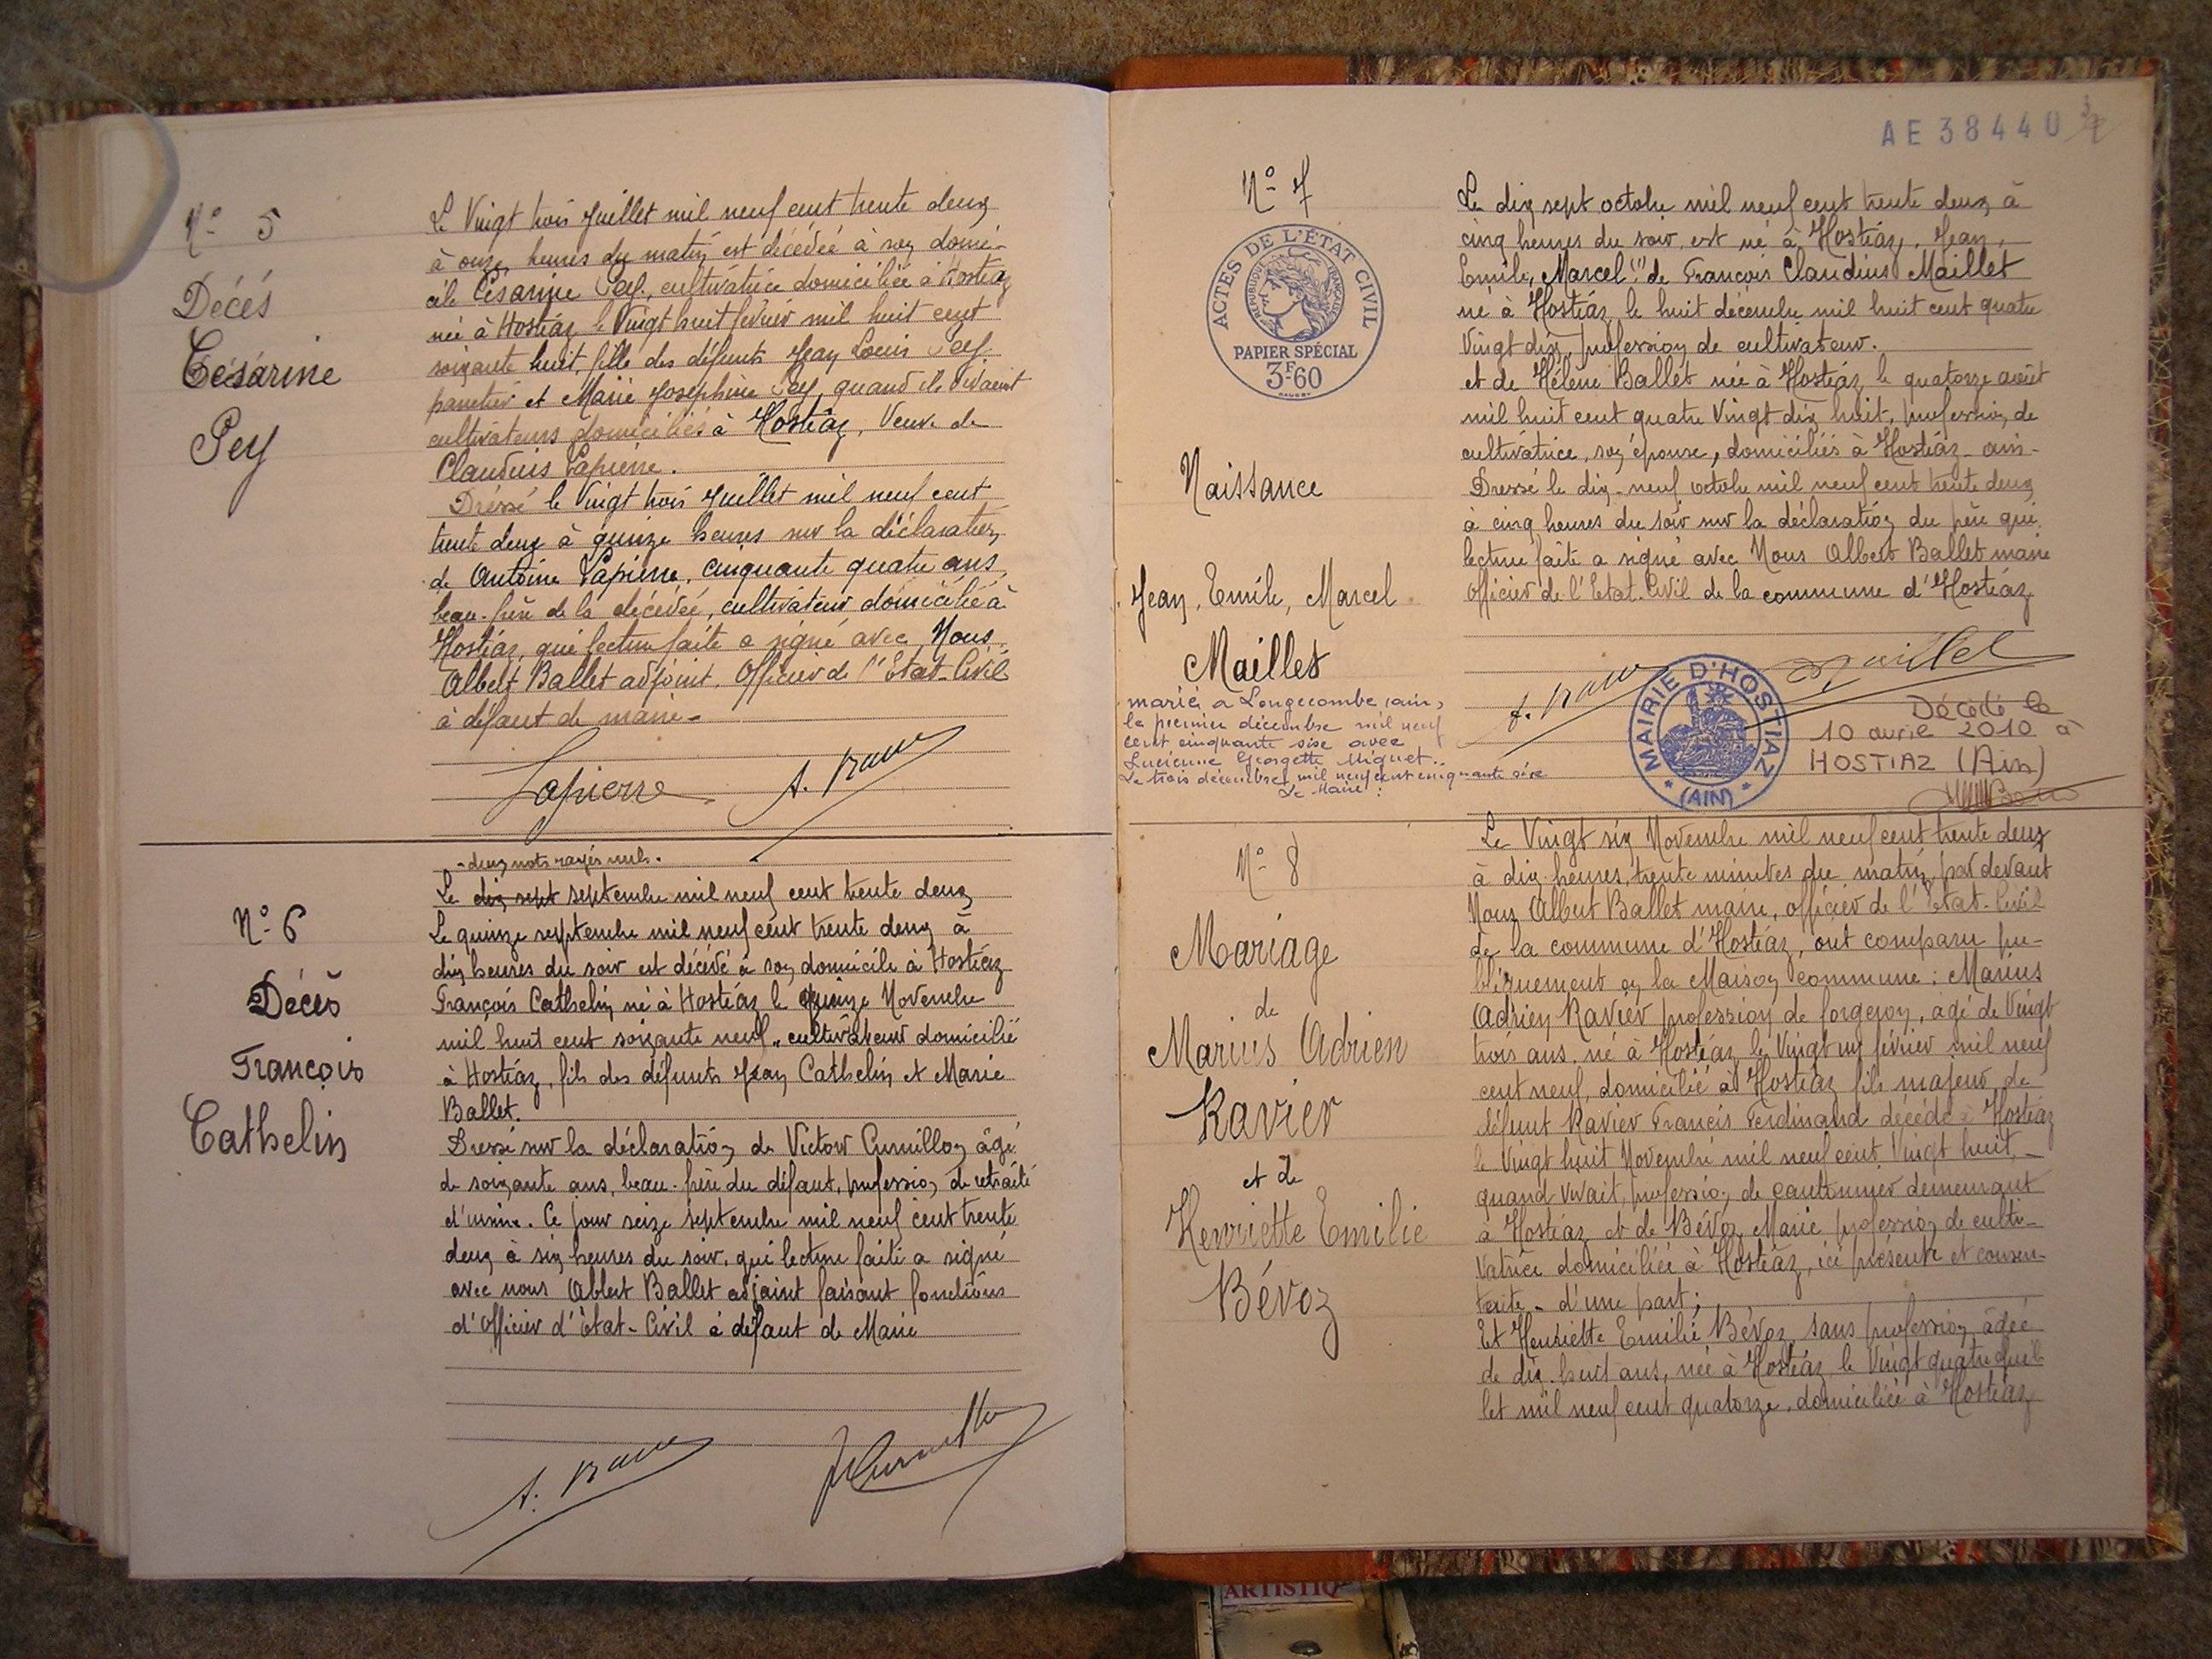 N° 5
Décés
Césarine
Pey
Le Vingt trois Juillet mil neuf cent trente deux
à onze heures du matin est décédée à son domi-
cile Césarine Pey, cultivatrice domiciliée à Hostiaz
née à Hostiaz le Vingt huit février mil huit cent
soixante huit, fille des défunts Jean Louis Pey
et Marie Josephine Pey, quand ils vivaient
cultivateurs domiciliés à Hostiaz, Veuve de
Claudius Lapierre.
Dréssé le Vingt trois Juillet mil neuf cent
trente deux à quinze heures sur la déclaration
de Antoine Lapierre, cinquante quatre ans,
beau-frère de la décédée, cultivateur domicilié à
Hostiaz, qui lecture faite a signé avec Nous
Albert Ballet adjoint, Officier de l'Etat-Civil
à défaut de maire-
Lapierre
- deux mots rayés nuls.
N° 6
Décès
François
Cathelin
Le dix sept septembre mil neuf cent trente deux
Le quinze septembre mil neuf cent trente deux à
dix heures du soir est décédé à son domicile à Hostiaz
François Cathelin né à Hostiaz le quinze Novembre
mil huit cent soixante neuf, cultivateur domicilié
à Hostiaz, fils des défunts Jean Cathelin et Marie
Ballet.
Dressé sur la déclaration de Victor Curnillon âgé
de soixante ans, beau-frère du défunt, profession de retraité
d'usine. Ce jour seize septembre mil neuf cent trente
deux à six heures du soir, qui lecture faite a signé
avec nous Albert Ballet adjoint faisant fonctions
d'Officier d'Etat-Civil à défaut de Maire
AE 38440
N° 7
ACTES DE L'ÉTAT CIVIL
RÉPUBLIQUE FRANÇAISE
PAPIER SPÉCIAL
3F60
Naissance
Jean, Emile, Marcel
Maillet
marié a Longecombe (ain)
le premier décembre mil neuf
cent cinquante six avec
Lucienne Georgette Miguet.
Le trois décembre mil neuf cent cinquante six
Le Maire :
Le dix sept octobre mil neuf cent trente deux à
cinq heures du soir, est né à Hostiaz, Jean,
Emile, Marcel (1) de François Claudius Maillet
né à Hostiaz le huit décembre mil huit cent quatre
Vingt dix, profession de cultivateur.
et de Hélène Ballet née à Hostiaz le quatorze août
mil huit cent quatre Vingt dix huit, profession de
cultivatrice, son épouse, domiciliés à Hostiaz - ain-
Dressé le dix-neuf octobre mil neuf cent trente deux
à cinq heures du soir sur la déclaration du père qui
lecture faite a signé avec Nous Albert Ballet maire
Officier de l'Etat-Civil de la commune d'Hostiaz
Maillet
MAIRIE D'HOSTIAZ
(AIN)
Décédé le
10 avril 2010 à
HOSTIAZ (Ain)
N° 8
Mariage
de
Marius Adrien
Ravier
et de
Henriette Emilie
Bévoz
Le Vingt six Novembre mil neuf cent trente deux
à dix heures, trente minutes du matin, par devant
Nous Albert Ballet maire, officier de l'Etat-Civil
de la commune d'Hostiaz, ont comparu pu-
bliquement en la Maison commune : Marius
Adrien Ravier profession de forgeron, âgé de Vingt
trois ans, né à Hostiaz le Vingt un février mil neuf
cent neuf, domicilié à Hostiaz fils majeur de
défunt Ravier Francis Ferdinand décédé à Hostiaz
le Vingt huit Novembre mil neuf cent Vingt huit, -
quand vivait, profession de cantonnier demeurant
à Hostiaz et de Bévoz Marie profession de culti-
vatrice domiciliée à Hostiaz, ici présente et consen-
tante - d'une part ;
Et Henriette Emilie Bévoz, sans profession, âgée
de dix-huit ans, née à Hostiaz le Vingt quatre Juil-
let mil neuf cent quatorze, domiciliée à Hostiaz
ARTISTIQ